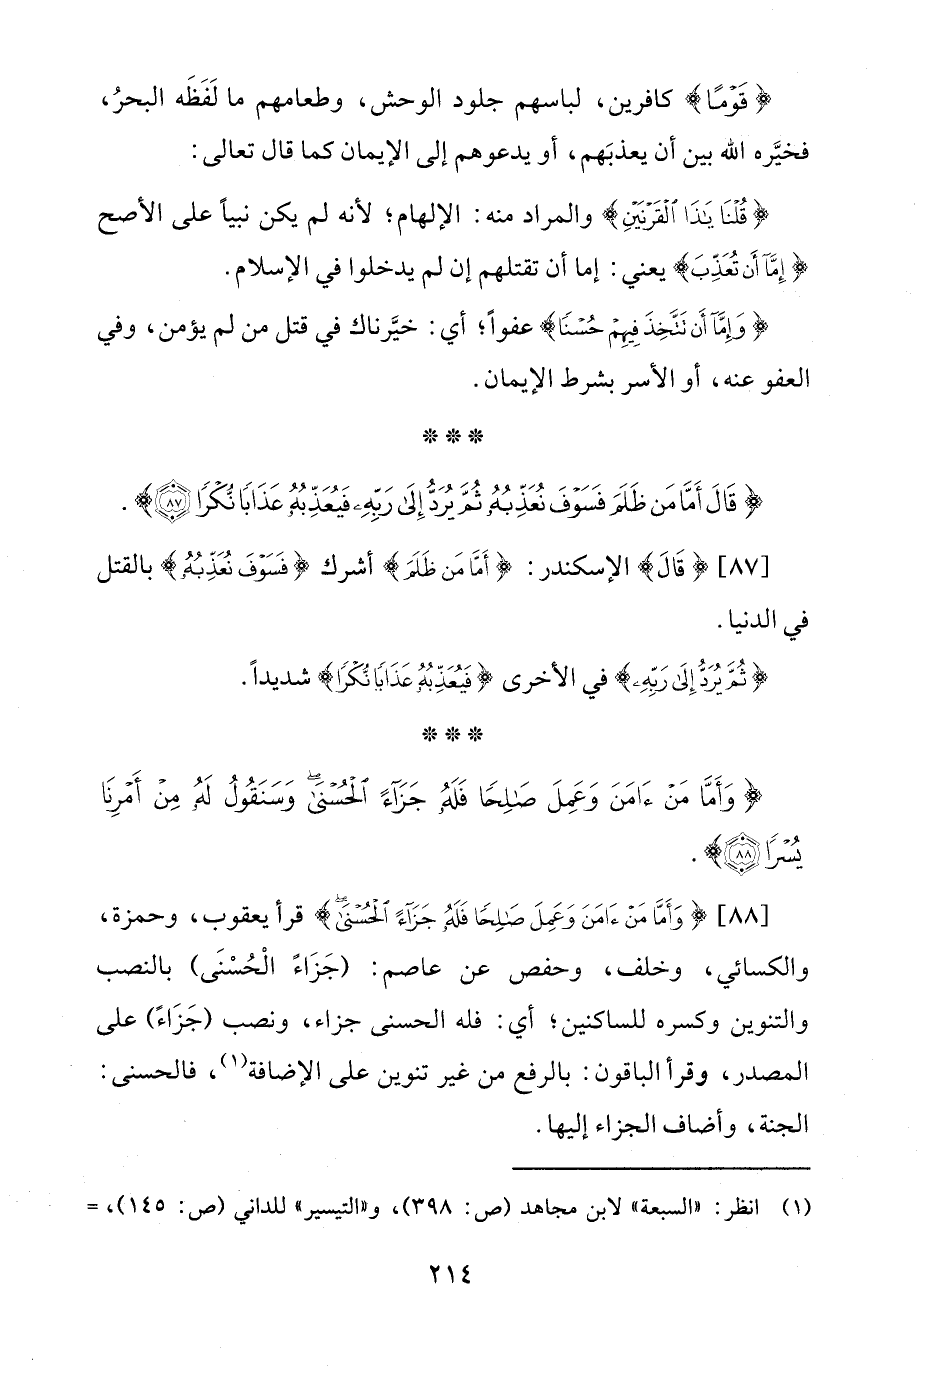 ﴿قَوْمًا﴾ كافرين، لباسهم جلود الوحش، وطعامهم ما لَفَظَه البحرُ،
فخيَّره الله بين أن يعذبَهم، أو يدعوهم إلى الإيمان كما قال تعالى:
﴿قُلْنَا يَٰذَا ٱلْقَرْنَيْنِ﴾ والمراد منه: الإلهام؛ لأنه لم يكن نبياً على الأصح
﴿إِمَّآ أَن تُعَذِّبَ﴾ يعني: إما أن تقتلهم إن لم يدخلوا في الإسلام.
﴿وَإِمَّآ أَن تَتَّخِذَ فِيهِمْ حُسْنًا﴾ عفواً؛ أي: خيَّرناك في قتل من لم يؤمن، وفي
العفو عنه، أو الأسر بشرط الإيمان.
* * *
﴿قَالَ أَمَّا مَن ظَلَمَ فَسَوْفَ نُعَذِّبُهُۥ ثُمَّ يُرَدُّ إِلَىٰ رَبِّهِۦ فَيُعَذِّبُهُۥ عَذَابًا نُّكْرًا ٨٧﴾.
[٨٧] ﴿قَالَ﴾ الإسكندر: ﴿أَمَّا مَن ظَلَمَ﴾ أشرك ﴿فَسَوْفَ نُعَذِّبُهُۥ﴾ بالقتل
في الدنيا.
﴿ثُمَّ يُرَدُّ إِلَىٰ رَبِّهِۦ﴾ في الأخرى ﴿فَيُعَذِّبُهُۥ عَذَابًا نُّكْرًا﴾ شديداً.
* * *
﴿وَأَمَّا مَنْ ءَامَنَ وَعَمِلَ صَٰلِحًا فَلَهُۥ جَزَآءً ٱلْحُسْنَىٰ ۖ وَسَنَقُولُ لَهُۥ مِنْ أَمْرِنَا
يُسْرًا ٨٨﴾.
[٨٨] ﴿وَأَمَّا مَنْ ءَامَنَ وَعَمِلَ صَٰلِحًا فَلَهُۥ جَزَآءً ٱلْحُسْنَىٰ ۖ﴾ قرأ يعقوب، وحمزة،
والكسائي، وخلف، وحفص عن عاصم: (جَزَاءً الْحُسْنَى) بالنصب
والتنوين وكسره للساكنين؛ أي: فله الحسنى جزاء، ونصب (جَزَاءً) على
المصدر، وقرأ الباقون: بالرفع من غير تنوين على الإضافة(١)، فالحسنى:
الجنة، وأضاف الجزاء إليها.
(١) انظر: «السبعة» لابن مجاهد (ص: ٣٩٨)، و«التيسير» للداني (ص: ١٤٥)، =
٢١٤